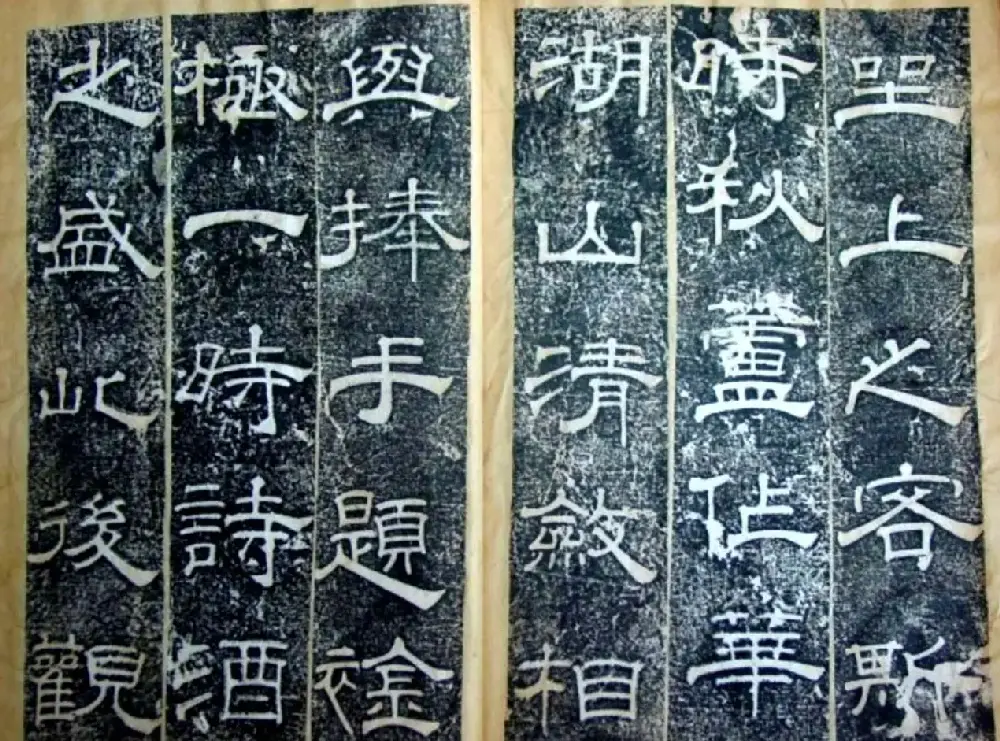 坐上之客斯
時秋蓋佔華
湖山清斂相
與捧手題襟
極一時詩酒
之盛此後觀